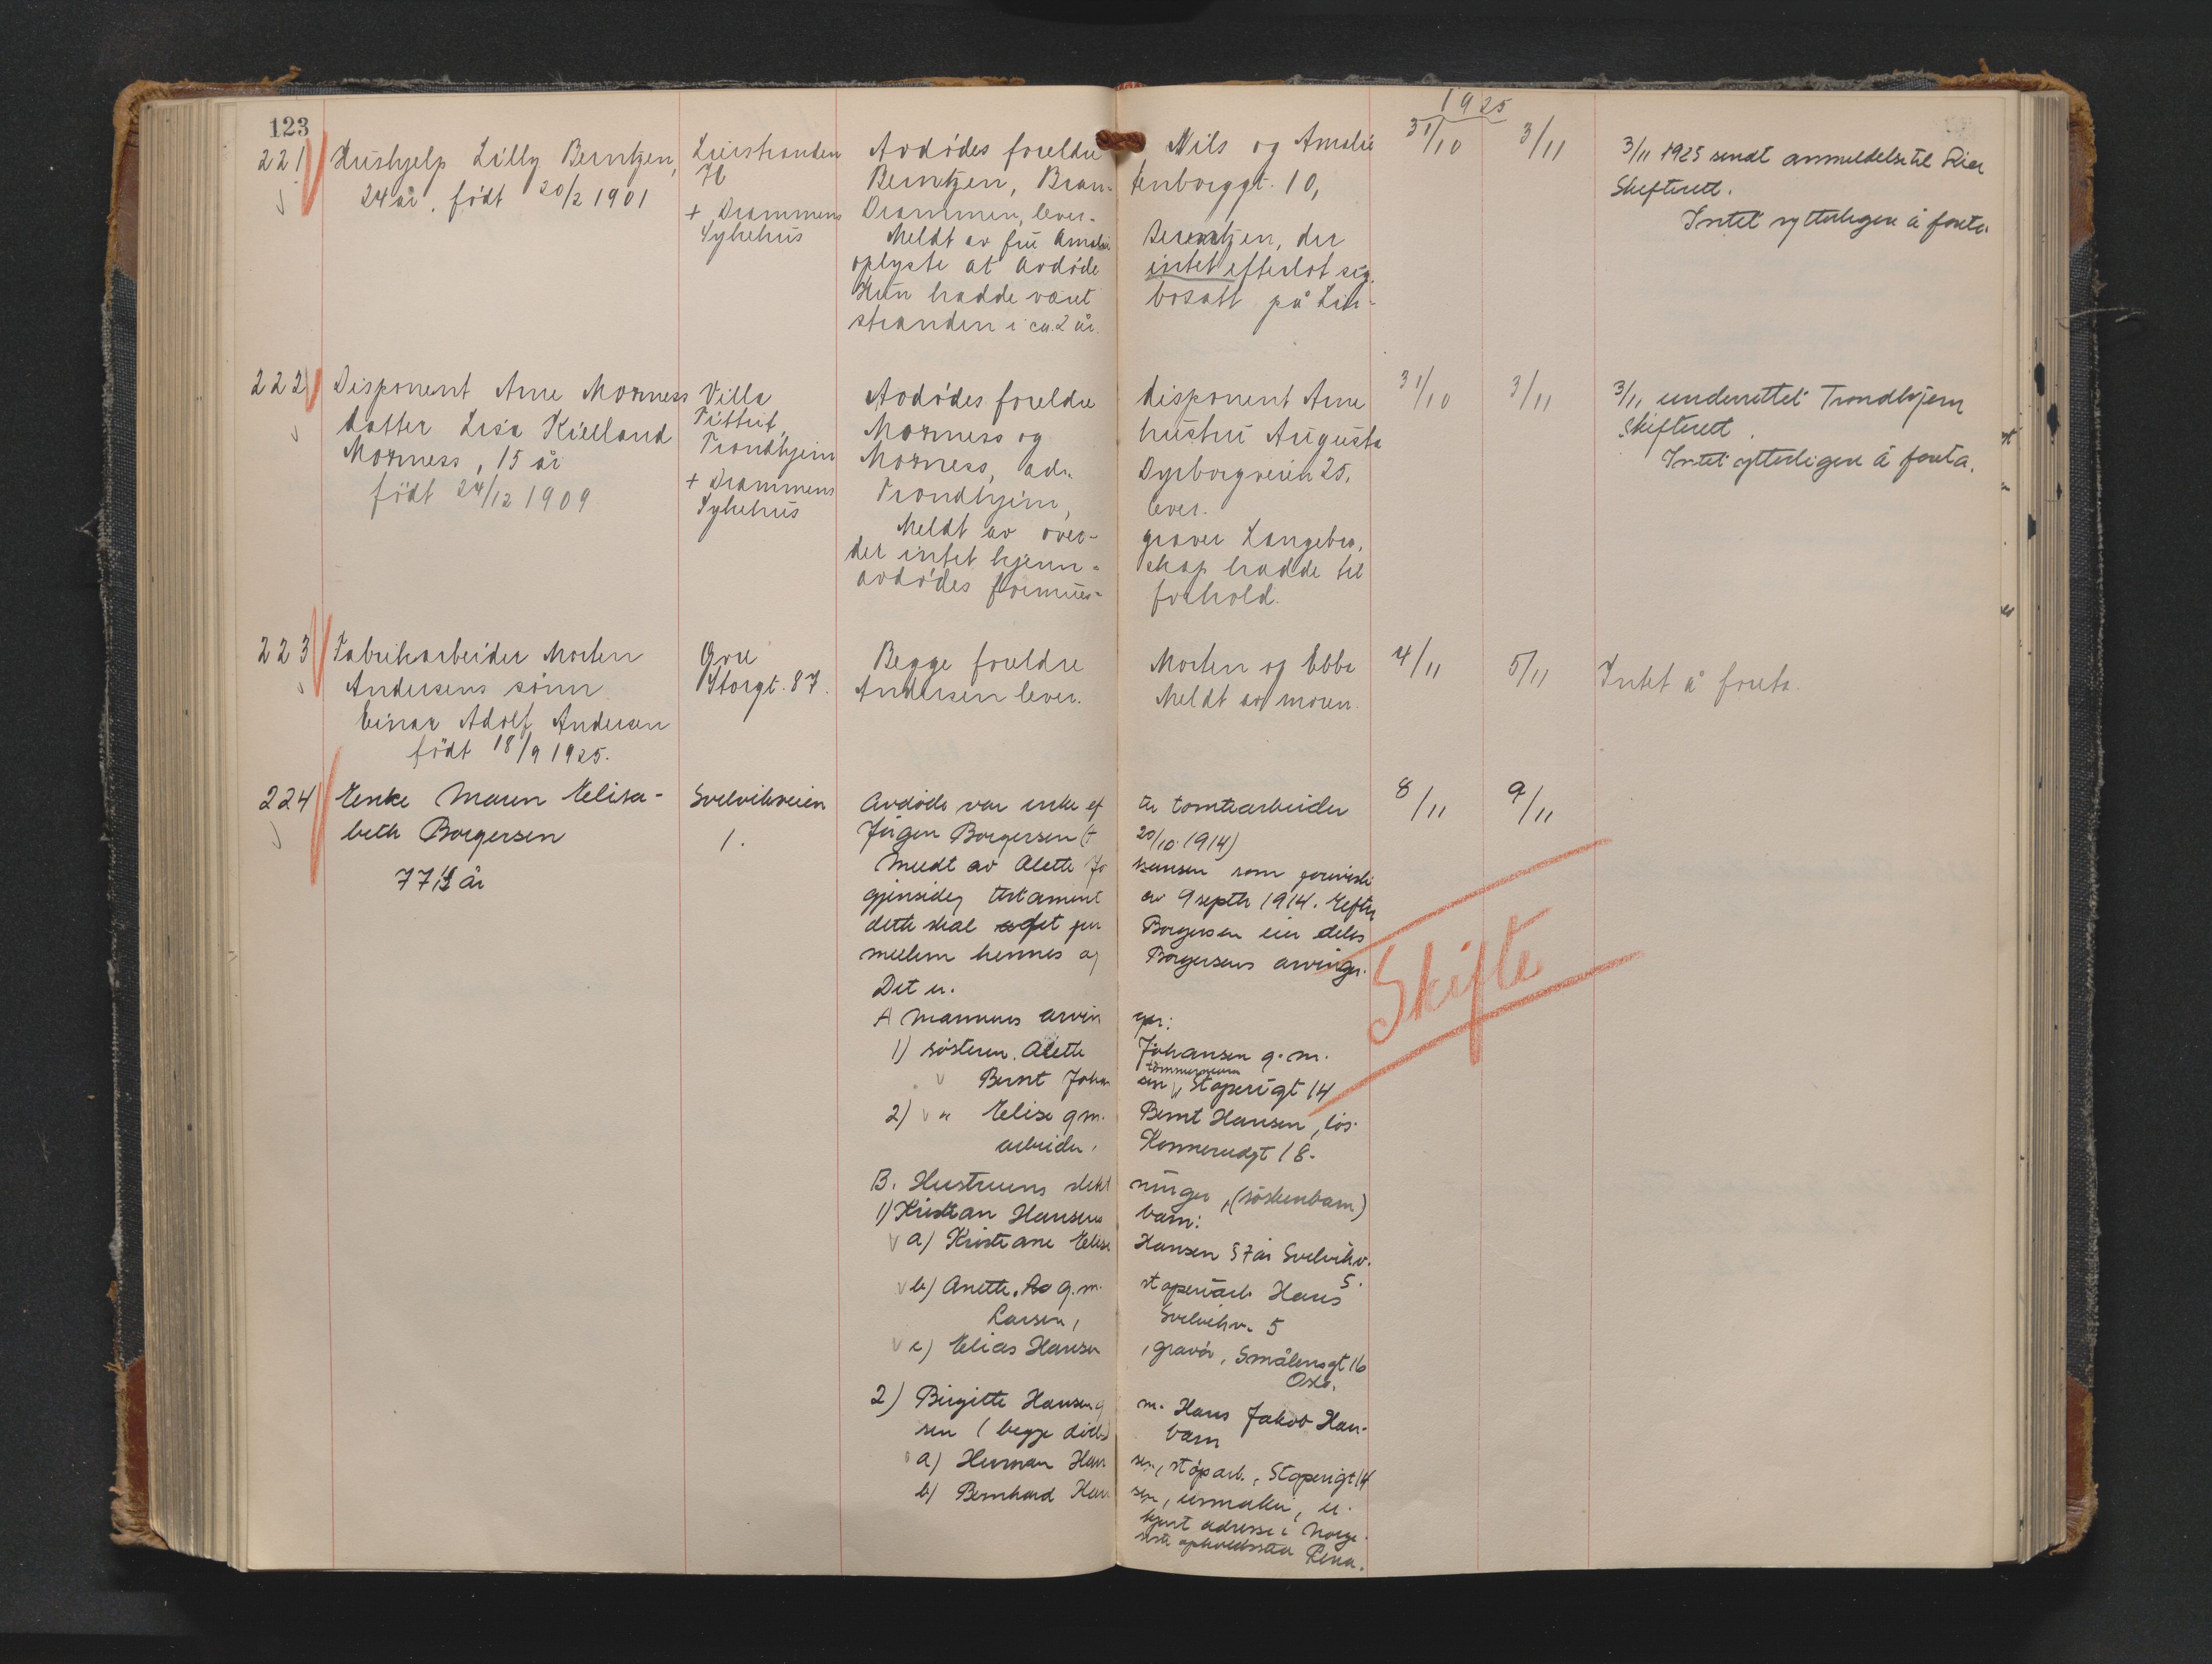 123
1925
221 Hushjelp Lilly Berntzen,
24 år, født 20/2 1901
Lierstranden
+ Drammens
Sykehus
Avdødes foreldre Nils og Amalie
Berntzen, Brantenborggt. 10,
Drammen, lever.
Meldt av fru Amalie Berentzen, der
oplyste at avdøde intet efterlot sig.
Hun hadde været bosatt på Lier-
stranden i ca. 2 år.
31/10
3/11
3/11 1925 sendt anmeldelse til Lier
Skifterett.
Intet ytterligere å foreta.
222 Disponent Arne Morness
datter Lisa Kielland
Morness, 15 år
født 24/12 1909
Villa
Trondhjem
+ Drammens
Sykehus
Avdødes foreldre disponent Arne
Morness og hustru Augusta
Morness, adr. Dyrborgveien 25,
Trondhjem, lever.
Meldt av over- graver Langebro,
der intet kjenn- skap hadde til
avdødes formues- forhold.
31/10
3/11
3/11 underrettet Trondhjem
skifterett.
Intet ytterligere å foreta.
223 Fabrikarbeider Morten
Andersens sønn
Einar Adolf Andersen
født 18/9 1925.
Øvre
Storgt. 87.
Begge foreldre Morten og Ebba
Andersen lever. Meldt av moren.
4/11
5/11
Intet å foreta.
224 Enke Maren Elisa-
beth Borgersen
77 1/2 år
Svelvikveien
1.
Avdøde var enke ef ter tomtearbeider
Jørgen Borgersen (+ 20/10 1914)
Meldt av Alette Jo hansen som foreviste
gjensidig testament av 9 septbr 1914. Efter
dette skal Borgersen eier deles
mellem hennes og Borgersens arvinger.
Det er.
A Mannens arvin ger:
1) søsteren Alette Johansen g. m.
Bernt Johan sen, tømmermann Støperigt 14
2) " Elise g.m. Bernt Hansen, løs-
arbeider, Konnerudgt 18.
B. Hustruens slekt ninger, (søskenbarn)
1) Kristian Hansens barn:
a) Kristiane Elise Hansen 57 år Svelvikv.
5.
b) Anette g.m. støperiarb. Hans
Larsen, Svelvikv. 5
c) Elias Hansen, gravør, Smålensgt 16
Oslo.
2) Birgitte Hansen g. m. Hans Jakob Han-
sen (begge døde) barn
a) Herman Han sen, støparb., Støperigt 14
b) Bernhard Han sen, urmaker, u-
kjent adresse i Norge.
siste opholdssted Rena.
8/11
9/11
Skifte